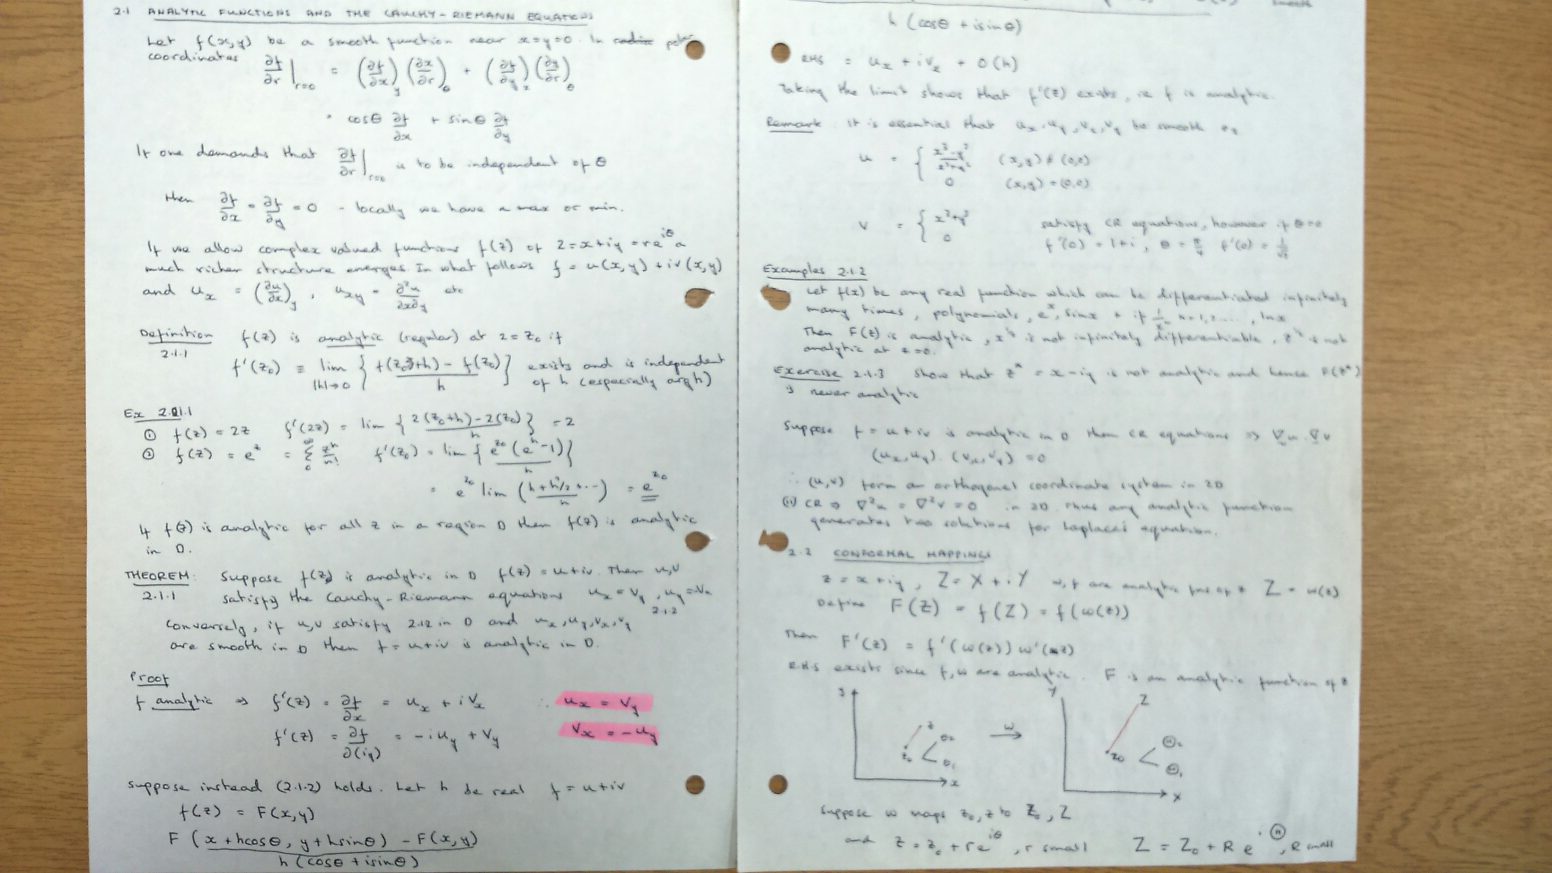 2.1 ANALYTIC FUNCTIONS AND THE CAUCHY-RIEMANN EQUATIONS
Let f(x,y) be a smooth function near x=y=0. In polar
coordinates ∂f/∂r|r=0 = (∂f/∂x)y (∂x/∂r)θ + (∂f/∂y)x (∂y/∂r)θ
= cosθ ∂f/∂x + sinθ ∂f/∂y
If one demands that ∂f/∂r|r=0 is to be independent of θ
then ∂f/∂x = ∂f/∂y = 0 - locally we have a max or min.
If we allow complex valued functions f(z) of z=x+iy=re^iθ a
much richer structure emerges. In what follows f = u(x,y) + iv(x,y)
and ux = (∂u/∂x)y, uxy = ∂²u/∂x∂y etc
Definition 2.1.1 f(z) is analytic (regular) at z=z0 if
f'(z0) ≡ lim |h|→0 { f(z0+h) - f(z0) / h } exists and is independent
of h (especially arg h)
Ex 2.1.1
① f(z) = 2z f'(2z) = lim { 2(z0+h)-2(z0) / h } = 2
② f(z) = e^z = Σ z^n/n! f'(z0) = lim { e^z0 (e^h-1) / h }
= e^z0 lim (h+h²/2+... / h) = e^z0
If f(z) is analytic for all z in a region D then f(z) is analytic
in D.
THEOREM: 2.1.1 Suppose f(z) is analytic in D f(z) = u+iv. Then u,v
satisfy the Cauchy-Riemann equations ux = vy, uy = -vx 2.1.2
Conversely, if u,v satisfy 2.1.2 in D and ux, uy, vx, vy
are smooth in D then f = u+iv is analytic in D.
Proof
f analytic ⇒ f'(z) = ∂f/∂x = ux + ivx ∴ ux = vy
f'(z) = ∂f/∂(iy) = -iuy + vy vx = -uy
Suppose instead (2.1.2) holds. Let h be real f = u+iv
f(z) = F(x,y)
F(x+hcosθ, y+hsinθ) - F(x,y) / h(cosθ+isinθ)
h(cosθ+isinθ)
RHS = ux + ivx + O(h)
Taking the limit shows that f'(z) exists, ie f is analytic.
Remark It is essential that ux, uy, vx, vy be smooth eg
u = { x³-y³/x²+y² (x,y)≠(0,0)
0 (x,y)=(0,0)
v = { x³+y³ satisfy CR equations, however if θ=0
0 f'(0) = 1+i, θ = π/4
Examples 2.1.2
Let f(x) be any real function which can be differentiated infinitely
many times, polynomials, e^x, sinx n=1,2...., lnx
Then F(z) is analytic, is not infinitely differentiable, is not
analytic at z=0.
Exercise 2.1.3 Show that z* = x-iy is not analytic and hence F(z*)
is never analytic
Suppose f = u+iv is analytic in D then CR equations ⇒ ∇u.∇v
(ux,uy).(vx,vy) = 0
∴ (u,v) form an orthogonal coordinate system in 2D
(ii) CR ⇒ ∇²u = ∇²v = 0 in 2D. Thus any analytic function
generates two solutions for Laplaces equation.
2.2 CONFORMAL MAPPINGS
z = x+iy, Z = X+iY w,f are analytic fns of z Z = w(z)
Define F(z) = f(Z) = f(w(z))
Then F'(z) = f'(w(z)) w'(z)
RHS exists since f,w are analytic. F is an analytic function of z
y z z0 θ2 θ1 x w → Y Z Z0 Θ2 Θ1 X
Suppose w maps z0,z to Z0,Z
and z = z0 + re^iθ, r small Z = Z0 + Re^iΘ, R small